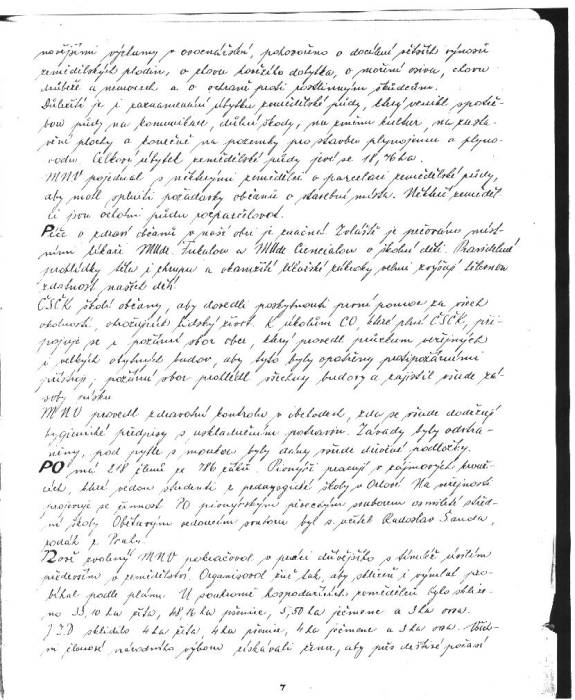 novějšími výzkumy v ovocnářství, pohovořeno o docílení větších výnosů
zemědělských plodin, o chovu hovězího dobytka, o moření osiva, chovu
drůbeže a nemocech a o ochraně proti rostlinným škůdcům.
Důležité je i zaznamenání úbytku zemědělské půdy, který vznikl spotře-
bou půdy na komunikace, důlní škody, na změnu kultur, na zasta-
vění plochy a konečně na pozemky pro stavbu plynojemu a plyno-
vodu. Celkový úbytek zemědělské půdy jeví se 18,46 ha.
MNV pojednal s některými zemědělci o parcelaci zemědělské půdy,
aby mohl splniti požadavky občanů o stavební místa. Někteří zeměděl-
ci jsou ochotni půdu rozparcelovat.
Péče o zdraví občanů v naší obci je značná. Zvláště je pečováno míst-
ními lékaři MUdr. Fukalou a MUdr. Cienciałou o školní děti. Pravidelné
prohlídky těla i chrupu a okamžité lékařské zákroky velmi zvyšují tělesnou
zdatnost našich dětí.
ČSČK školí občany, aby dovedli poskytnouti první pomoc za všech
okolností, ohrožujících lidský život. K úkolům CO, které plní ČSČK, při-
pojuje se i požární sbor obce, který provedl průzkum veřejných
i velkých obytných budov, aby tyto byly opatřeny protipožárními
přístroji; požární sbor prohlédl všechny budovy a zajistil všude zá-
soby písku.
MNV provedl zdravotní kontrolu v obchodech, zda se všude dodržují
hygienické předpisy s uskladněním potravin. Závady byly odstra-
něny, pod pytle s moukou byly dány všude dřevěné podložky.
PO má 218 členů ze 786 žáků. Pionýři pracují v zájmových krouž-
cích, které vedou studenti z pedagogické školy v Orlové. Na veřejnosti
projevuje se činnost PO pionýrským pěveckým souborem osmileté střed-
ní školy. Obětavým vedoucím souboru byl s. učitel Radoslav Šanda,
rodák z Prahy.
Nově zvolený MNV pokračoval v práci dřívějšího s tímtéž úsilím
především v zemědělství. Organisoval žně tak, aby sklizeň i výmlat pro-
bíhal podle plánu. U soukromě hospodařících zemědělců bylo sklize-
no 33,10 ha žita, 48,16 ha pšenice, 5,50 ha ječmene a 3 ha ovsa.
JZD sklidilo 4 ha žita, 4 ha pšenice, 4 ha ječmene a 3 ha ovsa. Všich-
ni členové národního výboru získávali žence, aby přes deštivé počasí
7